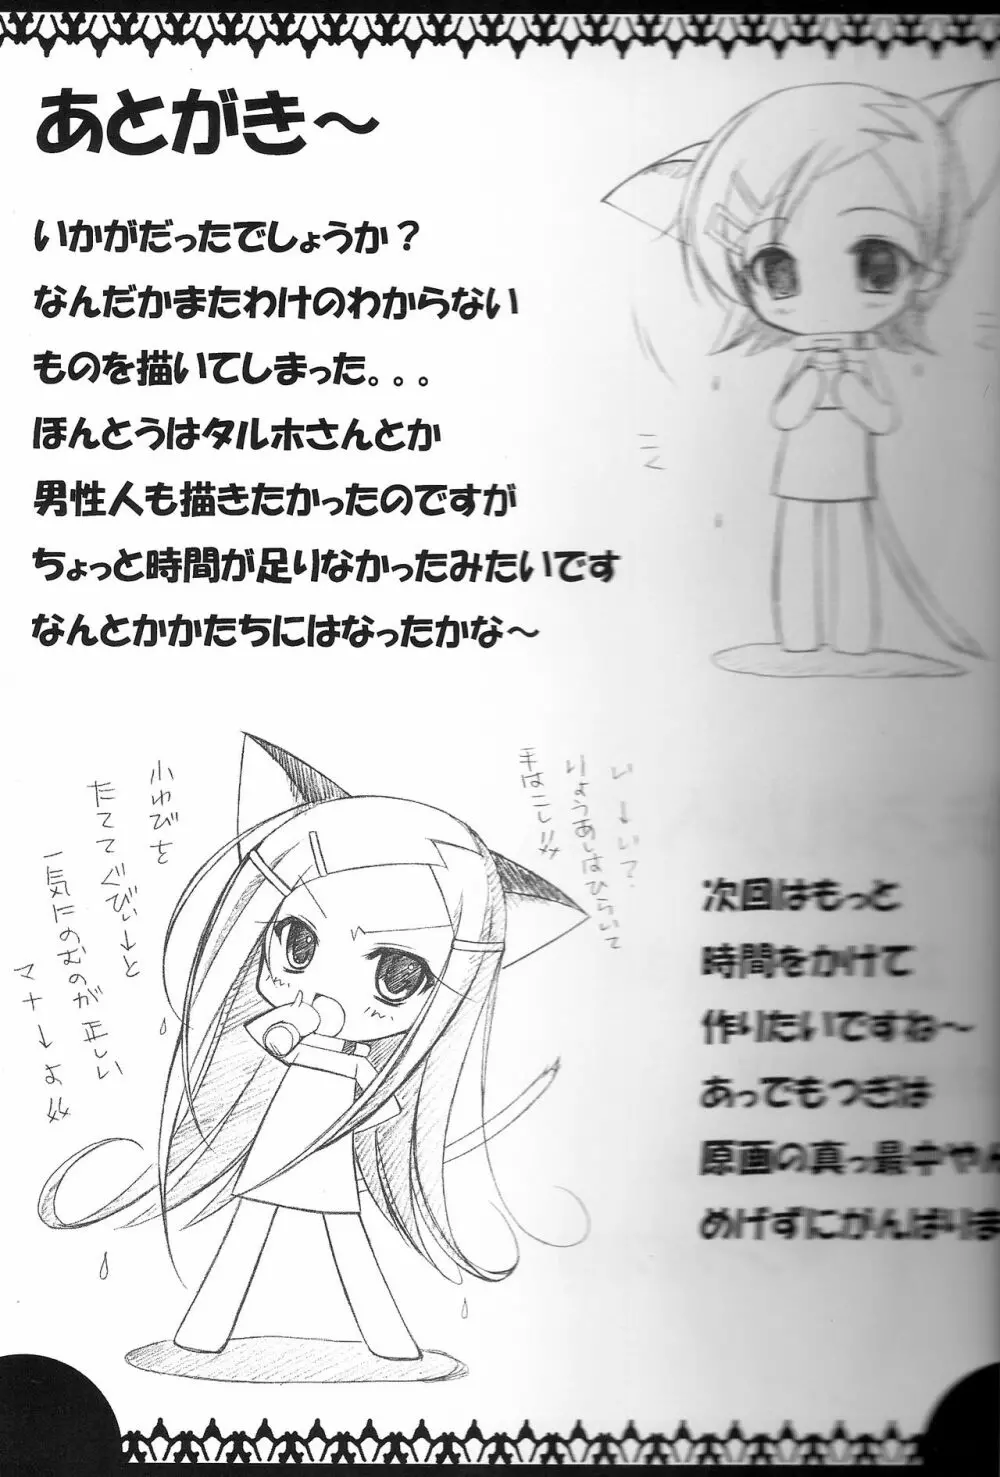 あとがき～
いかがだったでしょうか？
なんだかまたわけのわからない
ものを描いてしまった。。。
ほんとうはタルホさんとか
男性人も描きたかったのですが
ちょっと時間が足りなかったみたいです
なんとかかたちにはなったかな～
ニく
い→い？
りょうあしはひらいて
手はこし!!
小わびを
たててぐびぃ→っと
一気にのむのが正しい
マナ→よ
次回はもっと
時間をかけて
作りたいですね～
あってもつぎは
原画の真っ最中やん
めげずにがんばりま